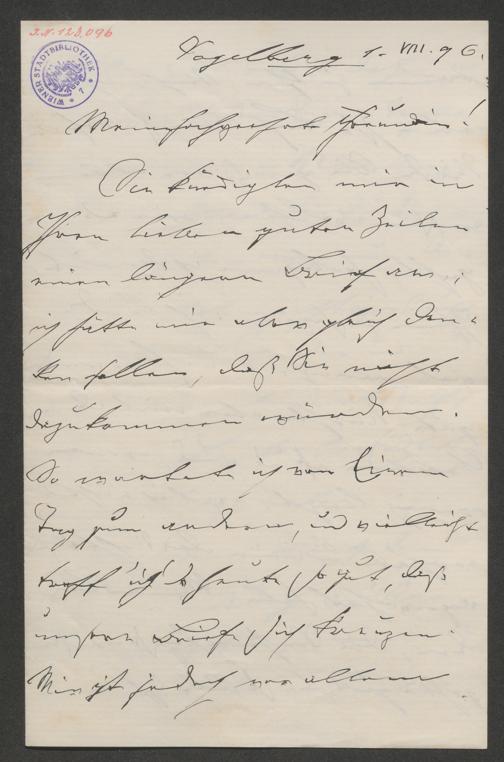 I.N. 123.096
WIENER STADTBIBLIOTHEK
Vogelberg 1. VIII. 96.
Meine hochverehrte Freundin!
Sie kündigten mir in
Ihren lieben guten Zeilen
einen längeren Brief an;
ich hätte mir aber gleich den-
ken sollen, daß Sie nicht
dazukommen würden.
So wartete ich von Einem
Tag zum andern, und vielleicht
treff' ich's heute so gut, daß
unsere Briefe sich kreuzen.
Mir ist jedoch vor allem